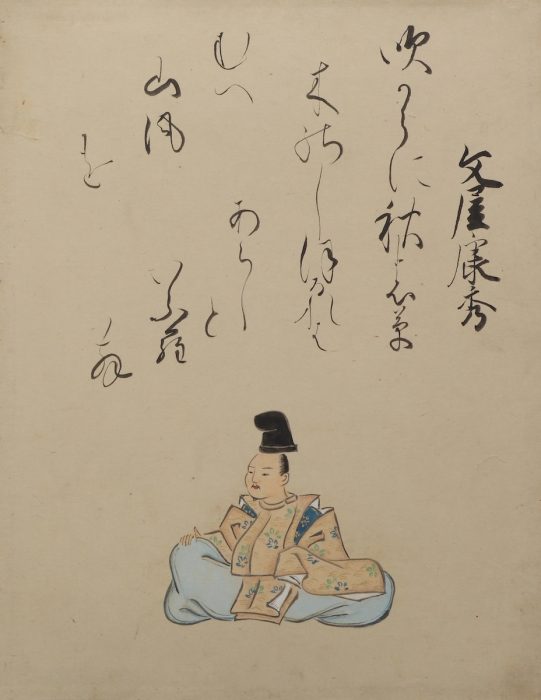 文屋康秀
吹からに秋の草
木のしほるれは
むへ
山風
を
あらし
と
いふ羅